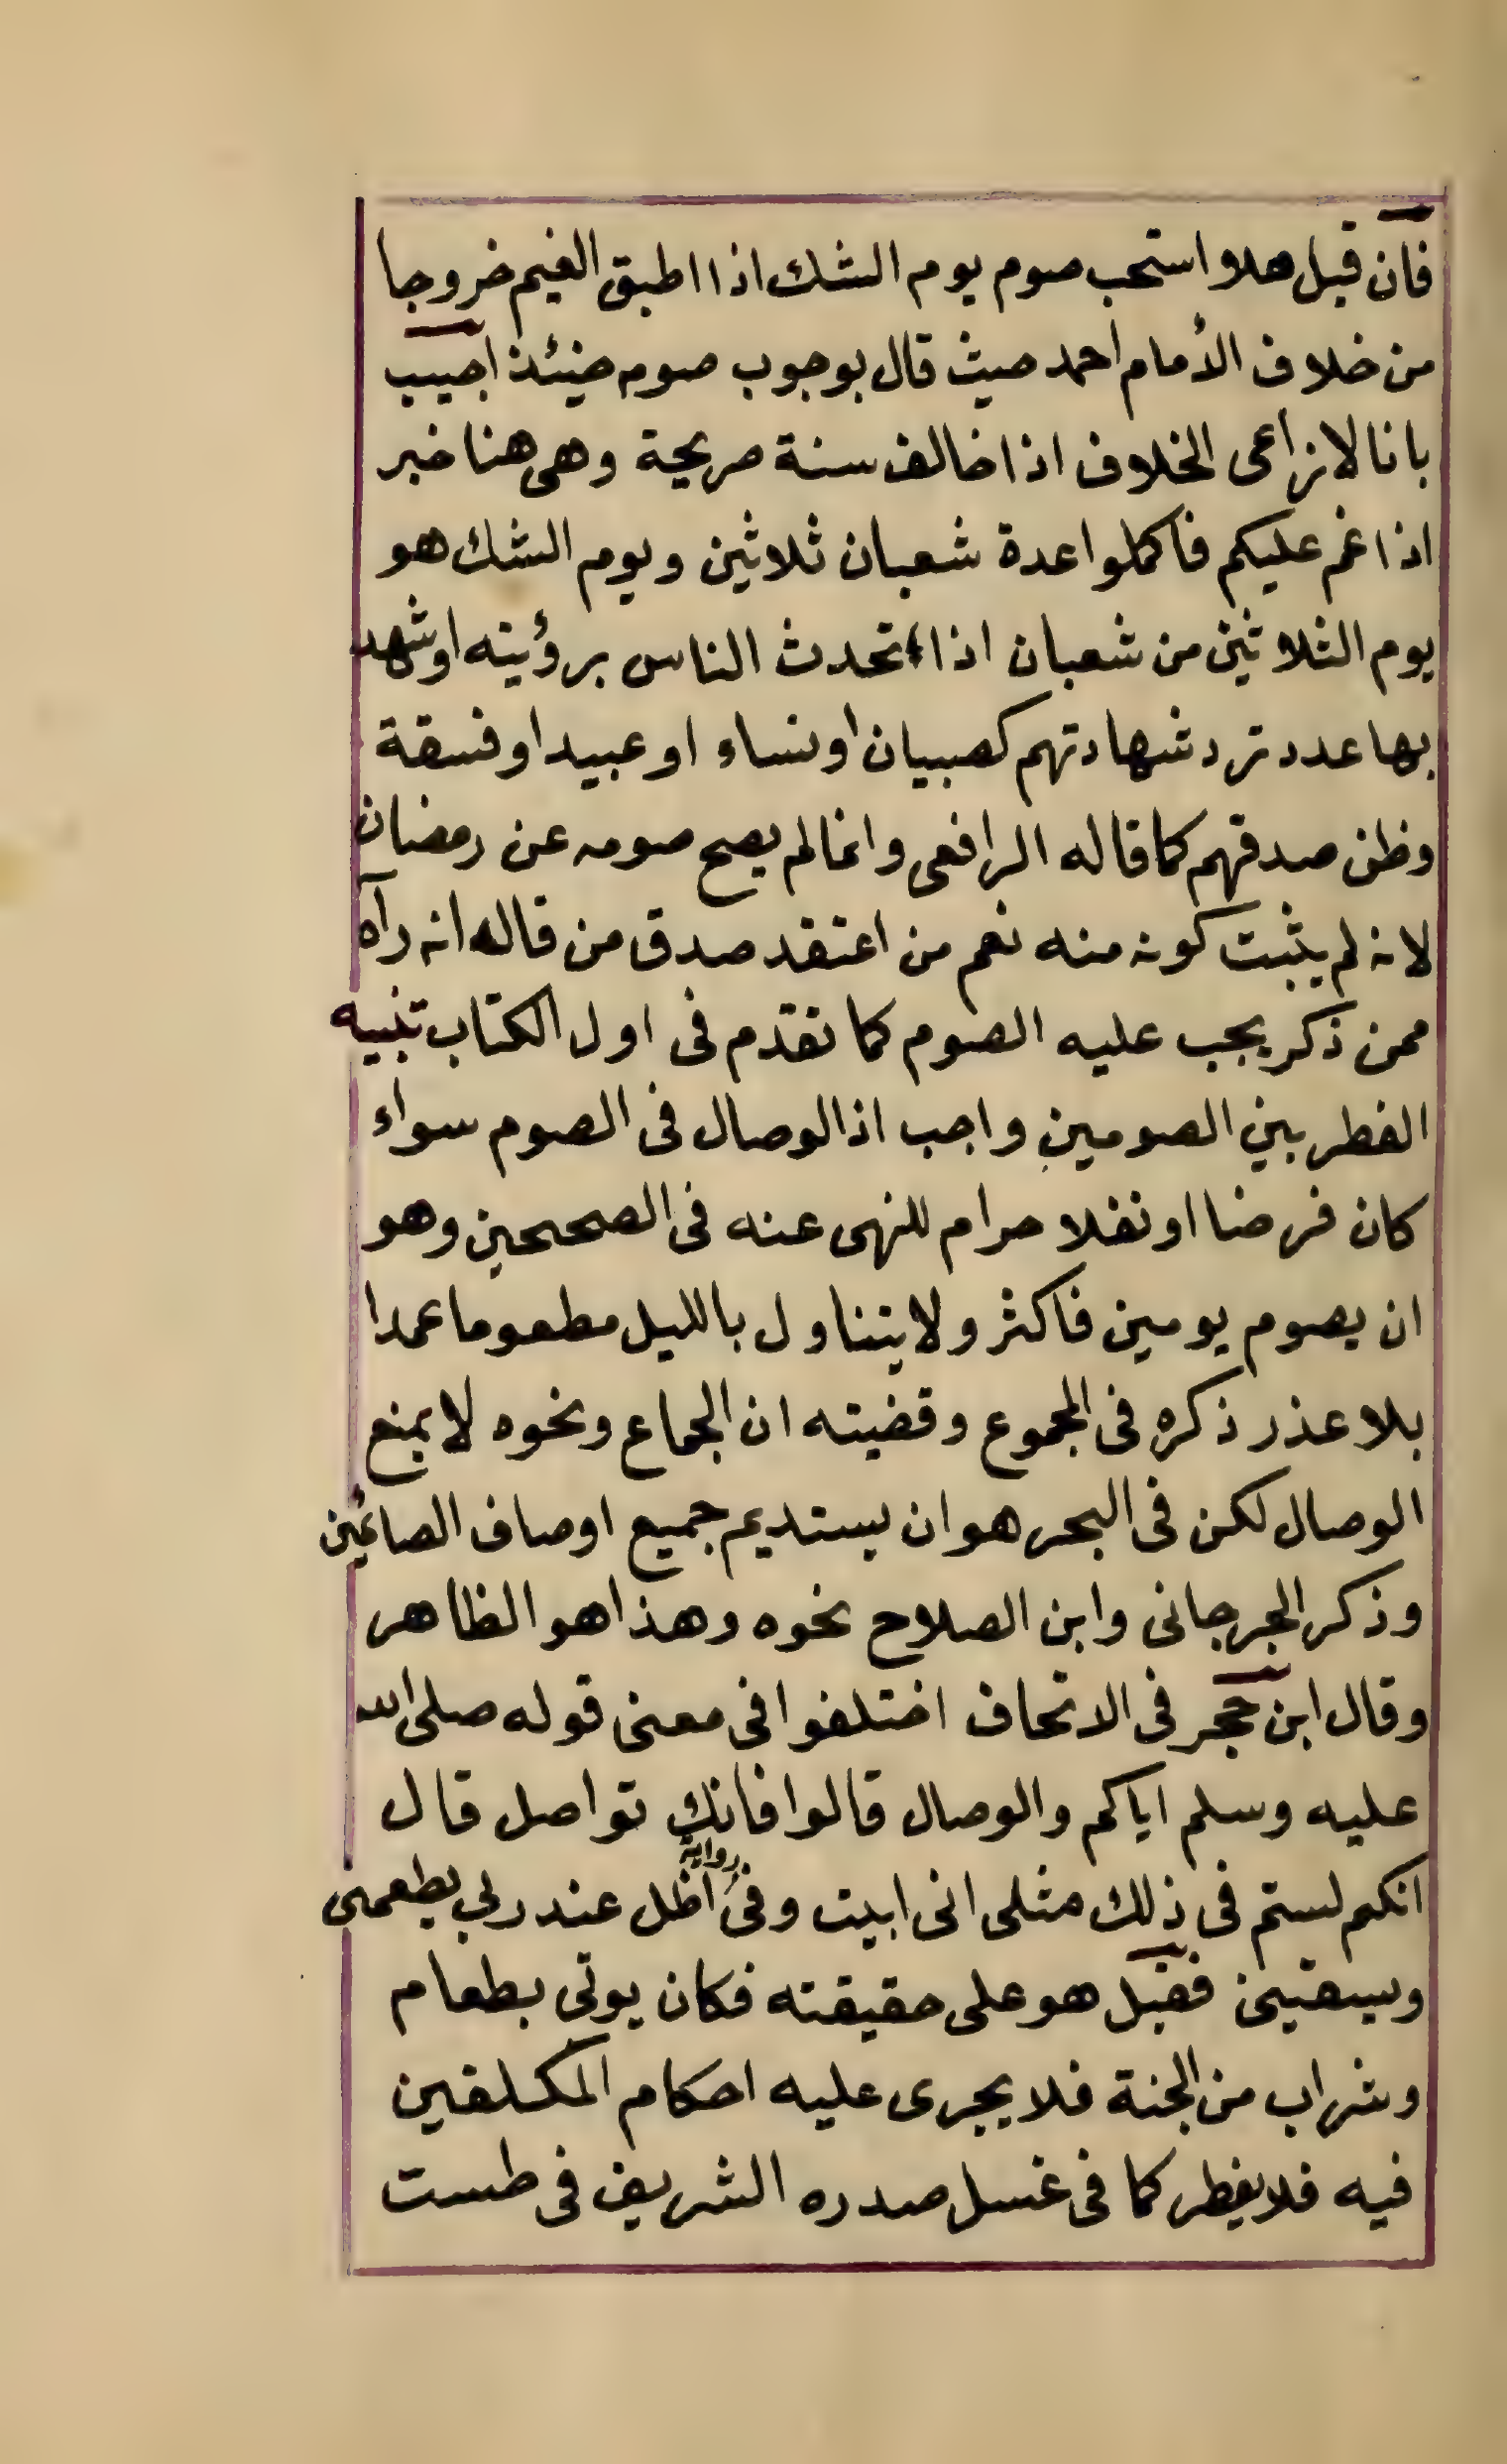 فان قيل هلا استحب صوم يوم الشك اذا اطبق الغيم خروجا
من خلاف الأمام احمد حيث قال بوجوب صومه حينئذ اجيب
بانا لا نراعى الخلاف اذا خالف سنة صريحة وهى هنا خبر
اذا غم عليكم فاكملوا عدة شعبان ثلاثين ويوم الشك هو
يوم الثلاثين من شعبان اذا تحدث الناس برؤيته او شهد
بها عدد ترد شهادتهم كصبيان او نساء او عبيد او فسقة
وظن صدقهم كما قاله الرافعى وانما لم يصح صومه عن رمضان
لانه لم يثبت كونه منه نعم من اعتقد صدق من قاله انه رآه
ممن ذكر يجب عليه الصوم كما تقدم فى اول الكتاب تنبيه
الفطر بين الصومين واجب اذ الوصال فى الصوم سواء
كان فرضا او نفلا حرام للنهى عنه فى الصحيحين وهو
ان يصوم يومين فاكثر ولا يتناول بالليل مطعوما عمدا
بلا عذر ذكره فى المجموع وقضيته ان الجماع ونحوه لا يمنع
الوصال لكن فى البحر هو ان يستديم جميع اوصاف الصائمين
وذكر الجرجانى وابن الصلاح نحوه وهذا هو الظاهر
وقال ابن حجر فى الاتحاف اختلفوا فى معنى قوله صلى الله
عليه وسلم اياكم والوصال قالوا فانك تواصل قال
انكم لستم فى ذلك مثلى انى ابيت وفى رواية اظل عند ربي يطعمنى
ويسقينى فقيل هو على حقيقته فكان يوتى بطعام
وشراب من الجنة فلا يجرى عليه احكام المكلفين
فيه فلا يفطر كما فى غسل صدره الشريف فى طست